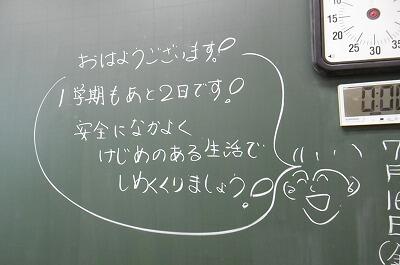 おはようございます!
1学期もあと2日です!
安全になかよく
けじめのある生活で
しめくくりましょう!
25
20
15
30
35
0:00
7
月
16
日
(金